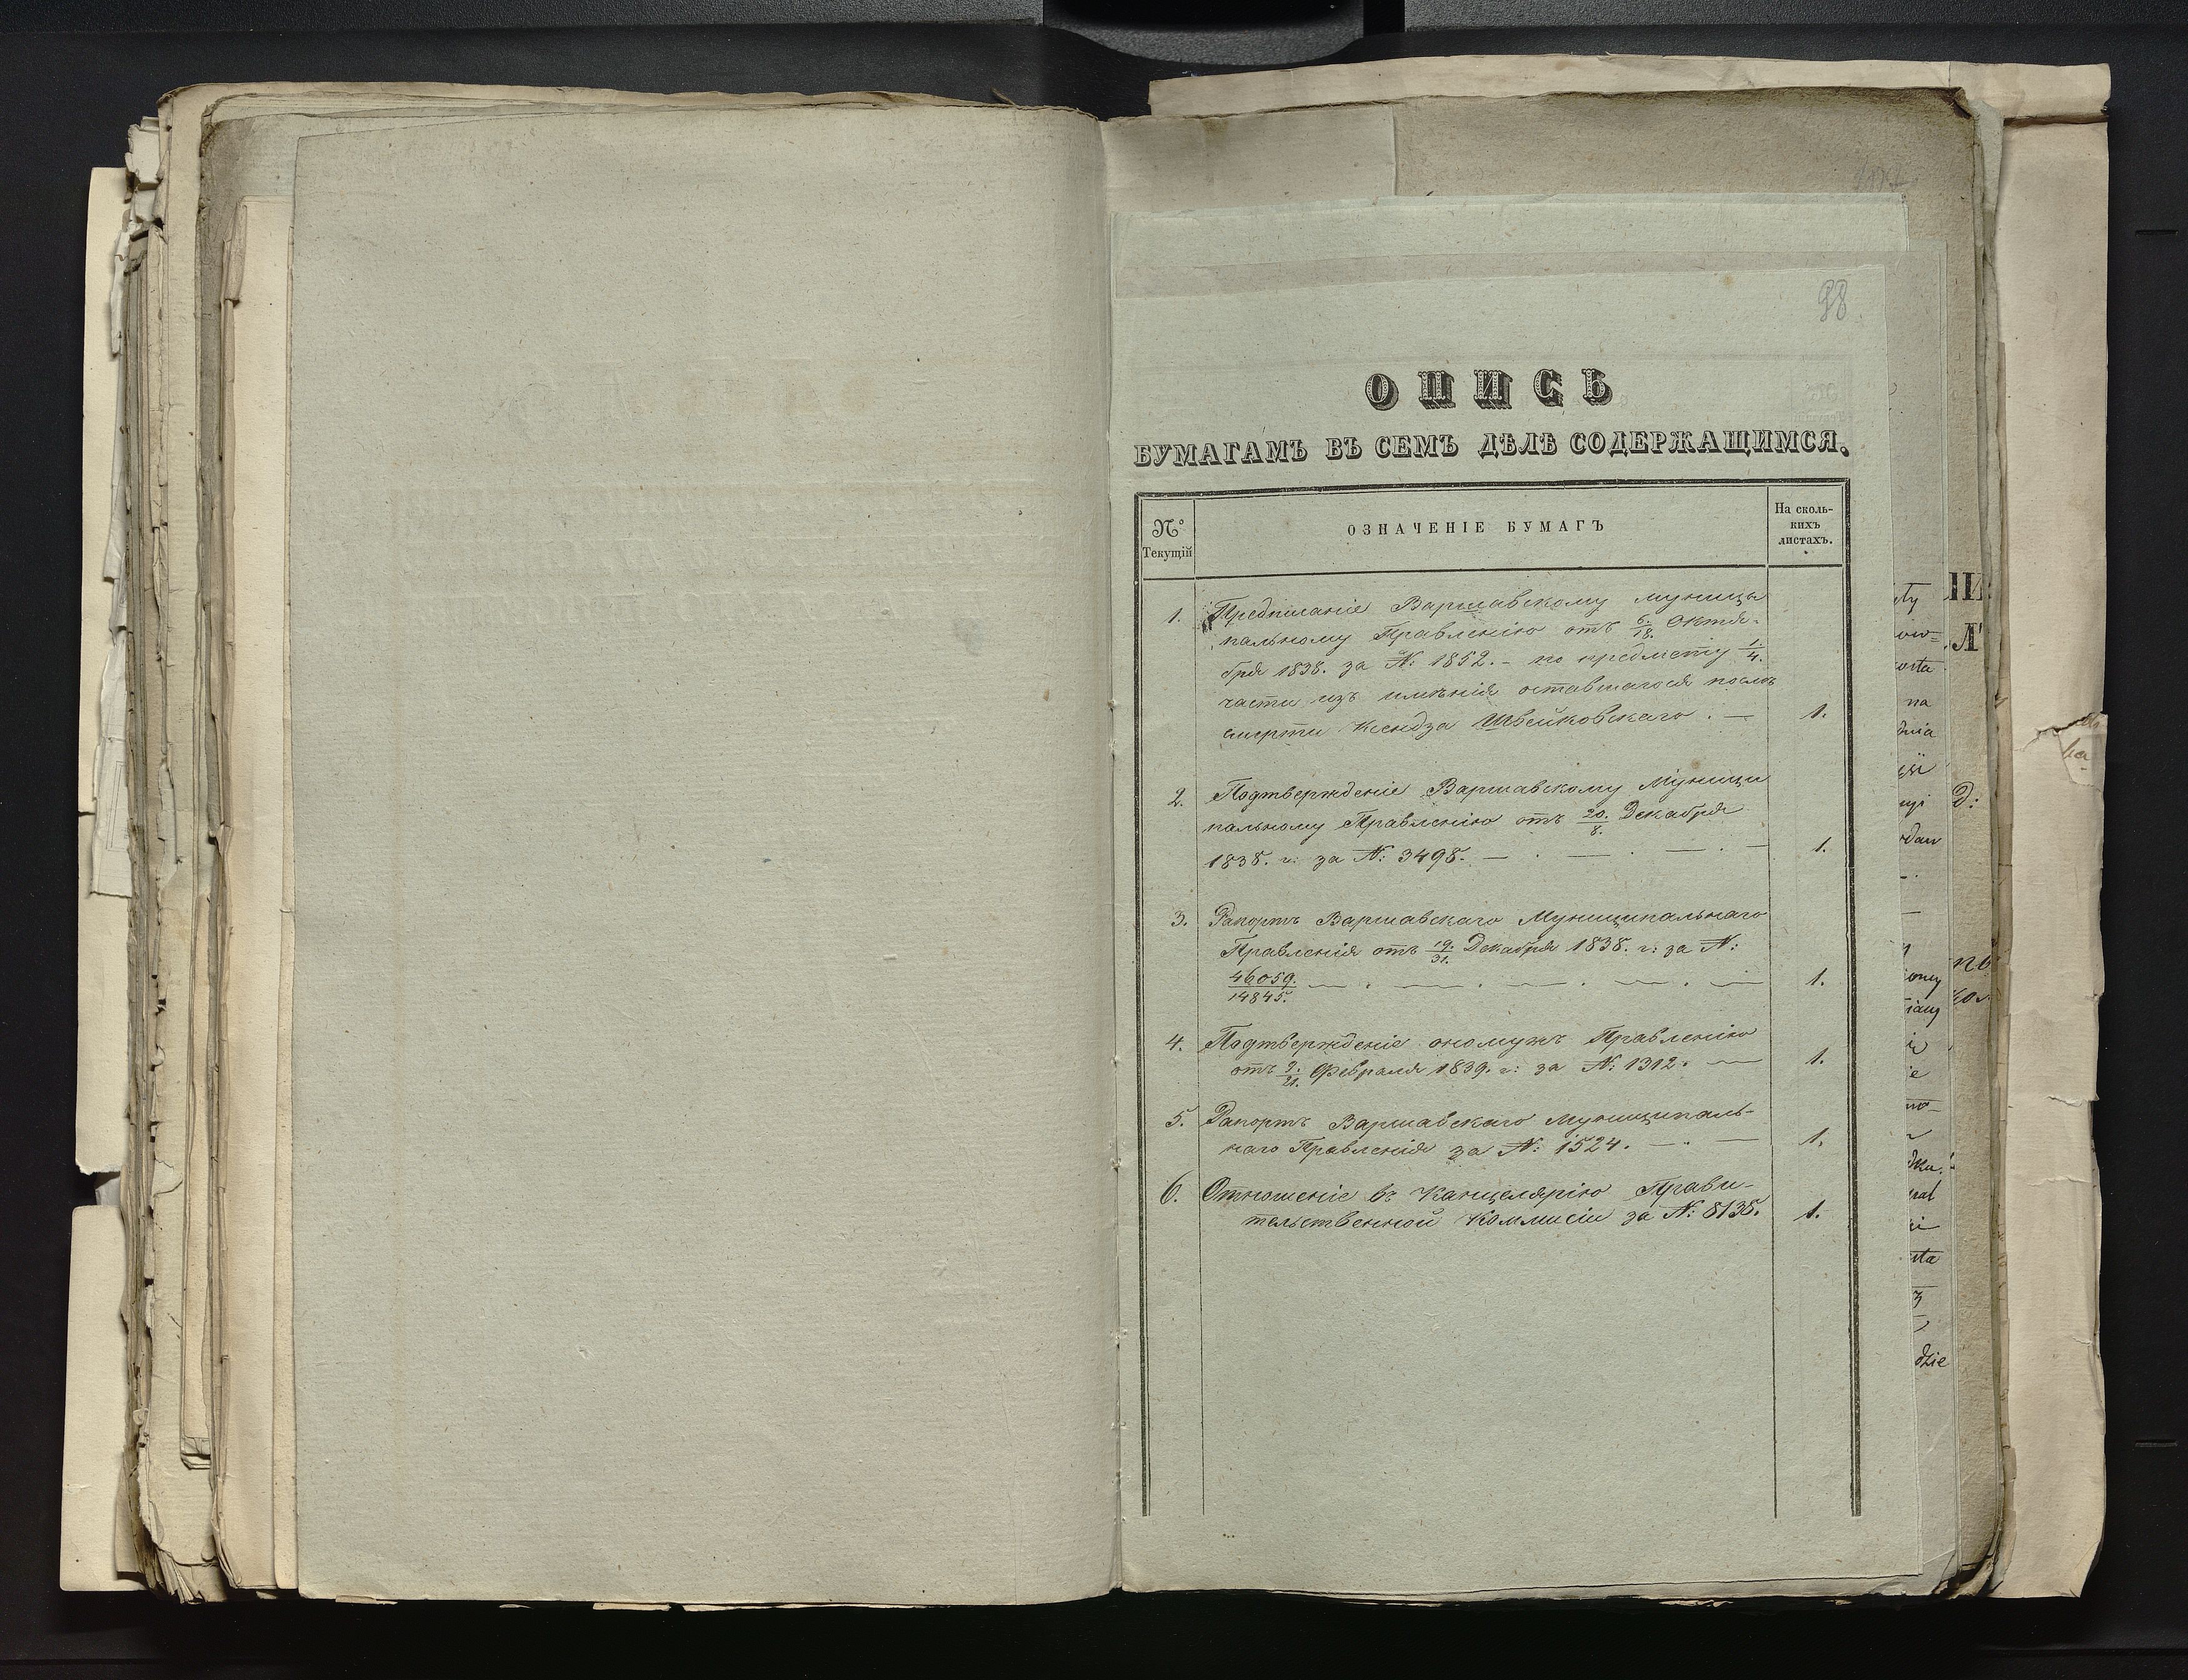 98
ОПИСЬ
БУМАГАМЪ ВЪ СЕМЪ ДѢЛѢ СОДЕРЖАЩИМСЯ.
№ Текущій
ОЗНАЧЕНІЕ БУМАГЪ
На сколь-
кихъ
листахъ.
1. Предписаніе Варшавскому Муници
пальному Правленію отъ 6./18. Октя-
бря 1838. за №: 1852. – по предмету 1./4.
части изъ имѣнія оставшагося послѣ
смерти Ксендза Швейковскаго . — 1.
2. Подтвержденіе Варшавскому Муници
пальному Правленію отъ 20./8. Декабря
1838. г: за №: 3498. — . — . — . — 1.
3. Рапортъ Варшавскаго Муниципальнаго
Правленія отъ 19./31. Декабря 1838. г: за №:
46059./14845. — . — . — . — . — 1.
4. Подтвержденіе ономужъ Правленію
отъ 9./21. Февраля 1839. г: за №: 1312. — 1.
5. Рапортъ Варшавскаго Муниципаль-
наго Правленія за №: 1524. — . — 1.
6. Отношеніе въ Канцелярію Прави-
тельственной Коммисіи за №: 8138. 1.
osta
na
dnia
dau
iony
dzie